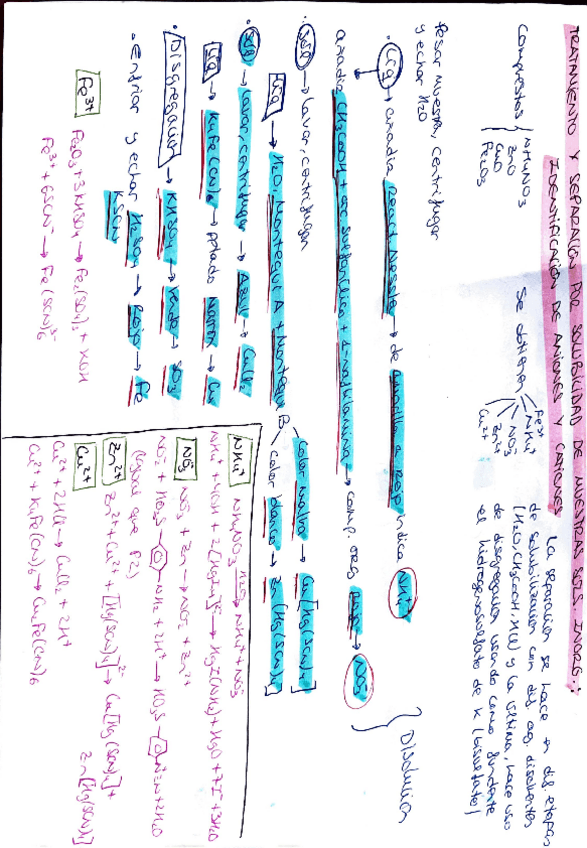 TRATAMIENTO Y SEPARACIÓN POR SOLUBILIDAD DE MUESTRAS SÓLS. INORG.:
IDENTIFICACIÓN DE ANIONES Y CATIONES
Compuestos { NH4NO3
ZnO
CuO
Fe2O3
Se obtiene
Fe3+
NH4+
NO3-
Zn2+
Cu2+
La separación se hace en dif. etapas
de solubilización con dif. ag. disolventes
(H2O, CH3COOH, HCl) y la última, hace uso
de disgregación usando como fundente
el hidrogenosulfato de K (bisulfato)
Pesar muestra, centrifugar
y echar H2O
Liq → añadir react Nessler → de amarillo a rojo indica NH4+
añadir CH3COOH + ác sulfanílico + 1-naftilamina → comp. org rojo → NO3-
} Disolución
· Sól → lavar, centrifugar
Liq → H2O, Montequi A + Montequi B
color malva → Cu[Hg(SCN)4]
color blanco → Zn[Hg(SCN)4]
· Sól → lavar, centrifugar → Azul → CuCl2
Liq → K4Fe(CN)6 → pptado marrón → Cu
· Disgregación → KHSO4 → Verde → SO3
· Enfriar y echar H2SO4 → Rojo → Fe
KSCN
Fe3+
Fe2O3 + 3KHSO4 → Fe2(SO4)3 + KOH
Fe3+ + 6SCN- → Fe(SCN)6 3-
NH4+
NH4NO3 H2O→ NH4+ + NO3-
NH4+ + 4OH- + 2[HgI4]2- → HgI(NH2) + HgO + 7I- + 3H2O
NO3-
NO3- + Zn → NO2- + Zn2+
NO2- + HO3S- -NH2 + 2H+ → HO3S- -N≡N + 2H2O
(Igual que P2)
Zn2+
Zn2+ + Cu2+ + [Hg(SCN)4]2- → Cu[Hg(SCN)4] +
Zn[Hg(SCN)4]
Cu2+
Cu2+ + 2HCl → CuCl2 + 2H+
Cu2+ + K4Fe(CN)6 → CuFe(CN)6